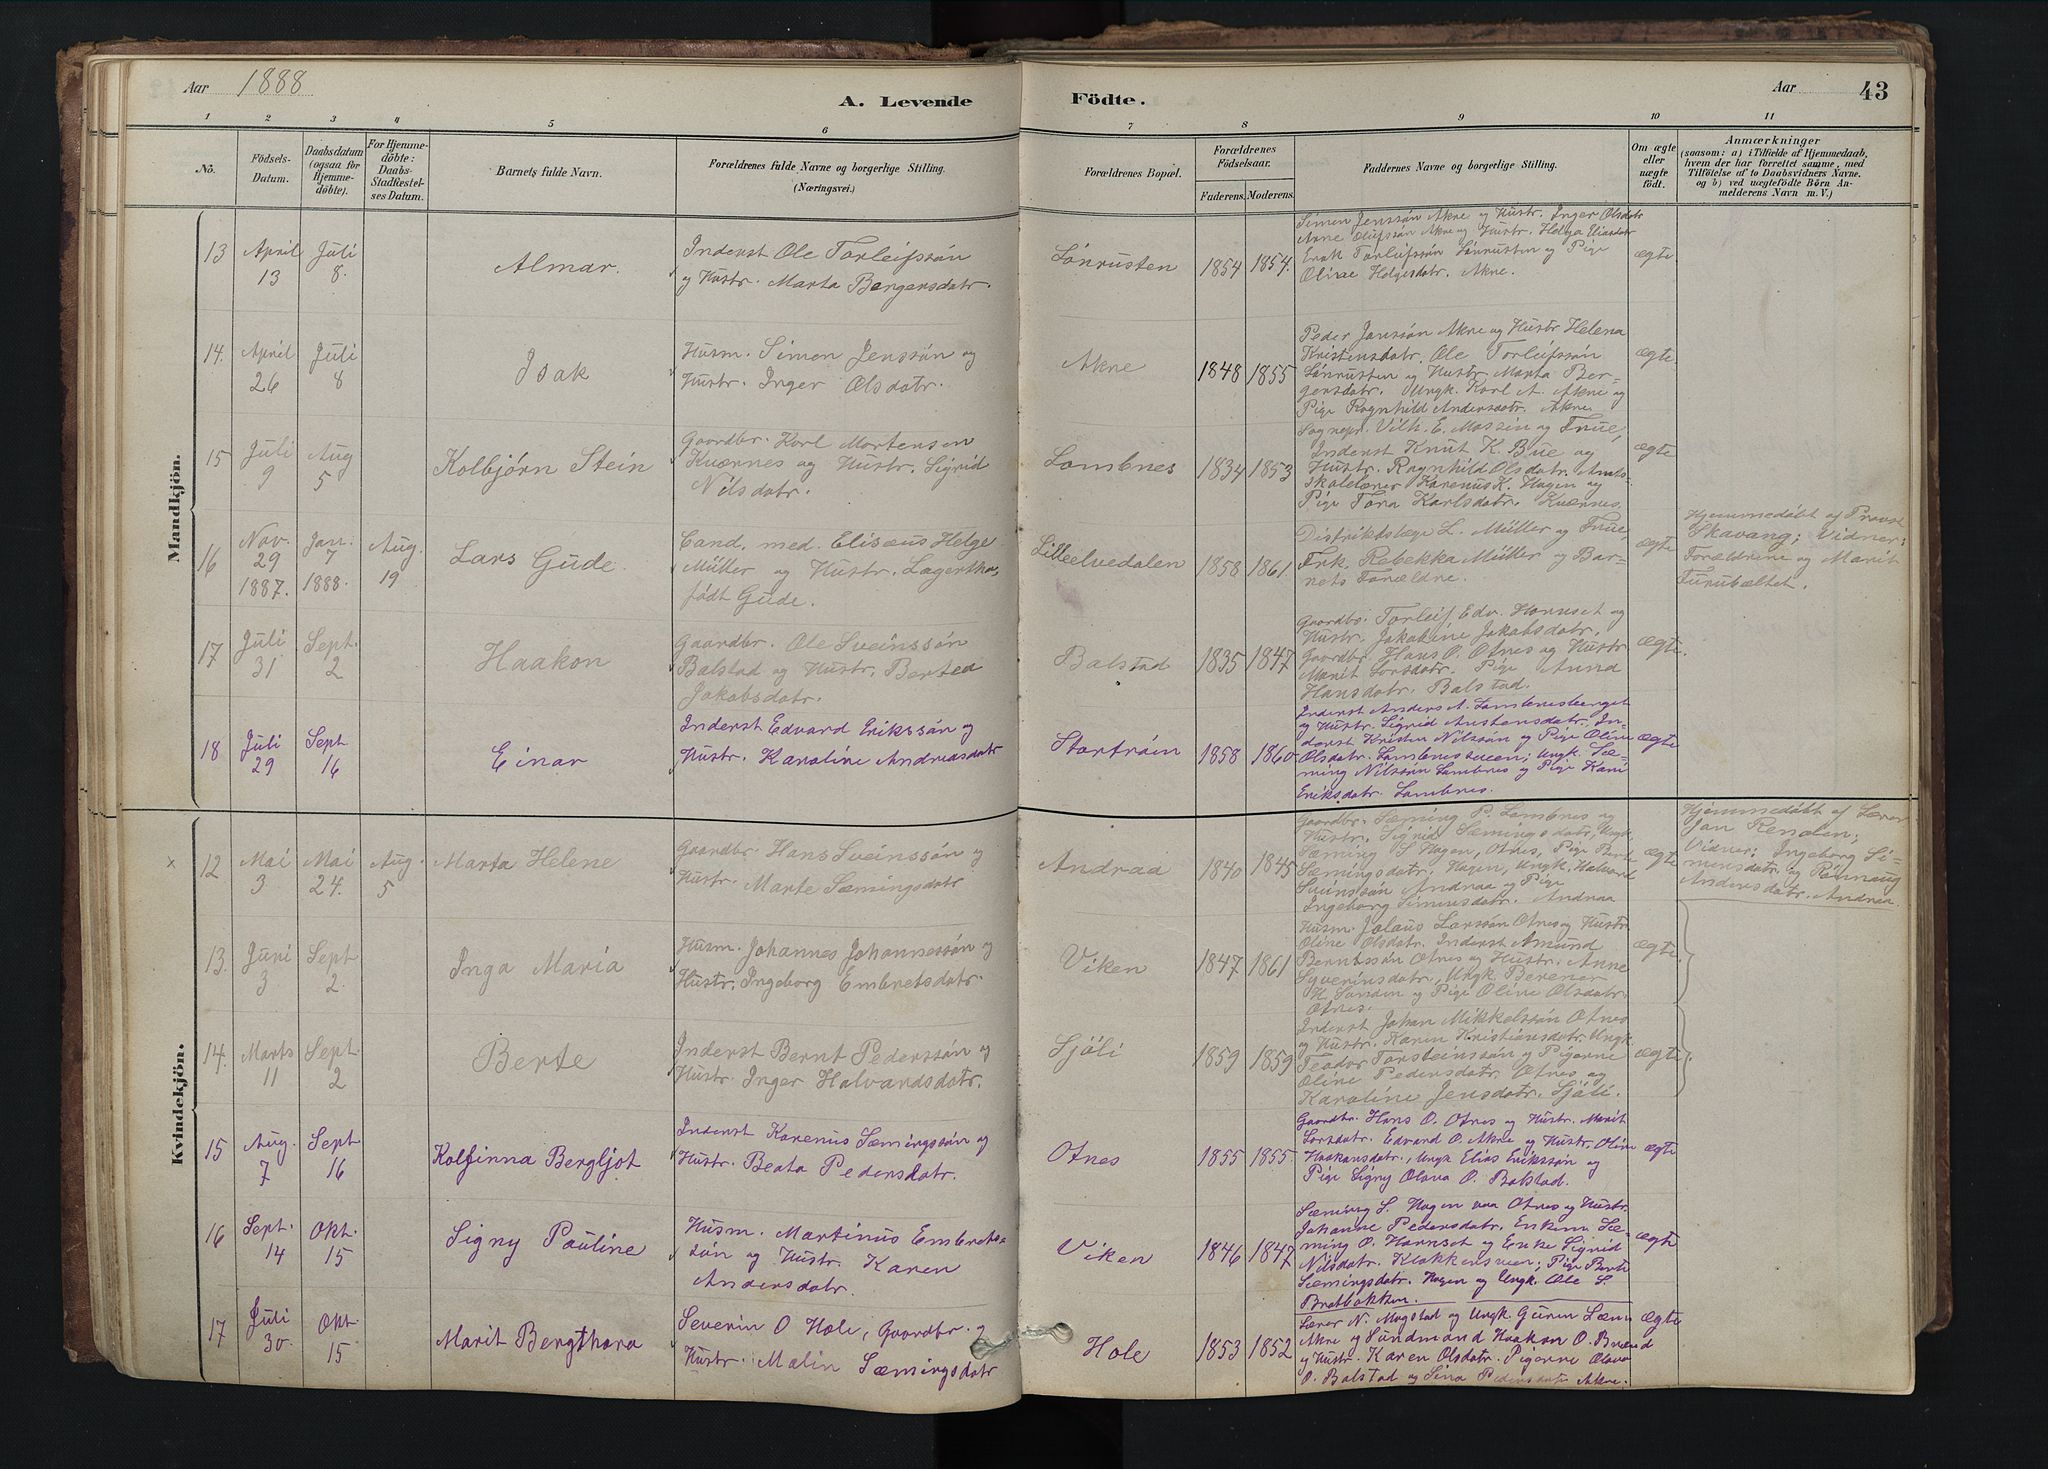 Aar 1888
A. Levende
Födte.
Aar
43
1 2 3 4 5 6 7 8 9 10 11
No.
Födsels-
Datum.
Daabsdatum
(ogsaa for
Hjemme-
döbte).
For Hjemme-
döbte:
Daabs-
Stadfæstel-
ses Datum.
Barnets fulde Navn.
Forældrenes fulde Navne og borgerlige Stilling.
(Næringsvei.)
Forældrenes Bopæl.
Forældrenes
Födselsaar.
Faderens.
Moderens.
Faddernes Navne og borgerlige Stilling.
Om ægte
eller
uægte
födt.
Anmærkninger
(saasom: a) i Tilfælde af Hjemmedaab,
hvem der har forrettet samme, med
Tilföielse af to Daabsvidners Navne.
og b) ved uægtefödte Börn An-
melderens Navn m. V.)
Mandkjön.
13
April
13
Juli
8.
Almar.
Inderst Ole Torleifssön
og Hustr. Marta Bergersdatr.
Lönrusten
1854
1854.
Simen Jenssön Akre og Hustr. Inger Olsdatr
Arne Olufssön Akre og Hustr. Helga Eliasdatr
Erik Torleifssön Lönrusten og Pige
Oline Helgesdatr. Akre.
ægte
14.
April
26
Juli
8
Isak
Husm. Simen Jenssön og
Hustr. Inger Olsdatr.
Akre
1848
1855
Peder Janssön Akre og Hustr Helena
Kristensdatr. Ole Torleifssön
Lönrusten og Hustr Marta Ber-
gersdatr. Ungk. Karl A. Akre og
Pige Ragnhild Andersdatr. Akre.
ægte
15
Juli
9
Aug
5
Kolbjörn Stein
Gaardbr. Karl Mortensen
Kværnes og Hustr. Sigrid
Nilsdatr.
Lombnes
1834
1853
Sognepr. Vilh. E. Massin og Frue,
Inderst Knut K. Bue og
Hustr. Ragnhild Olsdatr. Amts-
skolelærer Karenus K. Hagen og
Pige Tora Karlsdatr. Kværnes.
ægte
16
Nov.
29
1887.
Jan.
7
1888.
Aug.
19
Lars Gude
Cand. med. Elisæus Helge
Müller og Hustr. Lagertha,
födt Gude.
Lilleelvedalen
1858
1861
Distriktslæge L. Müller og Frue,
Frk. Rebekka Müller og Bar-
nets Forældre.
ægte
Hjemmedöbt af Provst
Skavang; Vidner:
Forældrene og Marit
Furubæltet.
17
Juli
31
Sept.
2
Haakon
Gaardbr. Ole Sveinssön
Balstad og Hustr. Bertea
Jakobsdatr.
Balstad
1835
1847
Gaardbr. Torleif Edv. Harnset og
Hustr. Jakobine Jakobsdatr.
Gaardbr. Hans O. Otnes og Hustr
Marit Larsdatr. Pige Anna
Hansdatr. Balstad.
ægte.
18
Juli
29
Sept
16
Einar
Inderst Edvard Erikssön og
Hustr. Karoline Andreasdatr
Stortröin
1858
1860
Inderst Anders A. Lombnesberget
og Hustr. Sigrid Austensdatr. In-
derst Kristen Nilssön og Pige Oline
Olsdatr. Lombnessveen; Ungk. Sæ-
ming Nilssön Lombnes og Pige Kari
Eriksdatr. Lombnes.
ægte
Kvindekjön.
x 12
Mai
3
Mai
24.
Aug.
5
Marta Helene
Gaardbr. Hans Sveinssön og
Hustr. Marte Sæmingsdatr
Andraa
1840
1845
Gaardbr. Sæming P. Lombnes og
Hustr. Sigrid Sæmingsdatr, Ungk.
Sæming S. Hagen, Otnes, Pige Berte
Sæmingsdatr. Hagen, Ungk. Halvard
Sveinssön Andraa og Pige
Ingeborg Simensdatr. Andraa
ægte
Hjemmedöbt af Lærer
Jon Rendlen;
Vidner: Ingeborg Si-
mensdatr. og Rönnaug
Andersdatr. Andraa.
13.
Juni
3
Sept
2
Inga Maria
Husm. Johannes Johannessön og
Hustr. Ingeborg Embretsdatr.
Viken
1847
1861
Husm. Jolaus Larssön Otnes og Hustr
Oline Olsdatr. Inderst Amund
Berntssön Otnes og Hustr. Anne
Syverinsdatr, Ungk. Berener
H. Sanden og Pige Oline Olsdatr.
Otnes.
ægte.
14.
Marts
11
Sept.
2
Berte
Inderst Bernt Pederssön og
Hustr. Inger Halvardsdatr.
Sjöli
1859
1859
Inderst Johan Mikkelssön Otnes
og Hustr. Karen Kristiansdatr. Ungk.
Teodor Torsteinssön og Pigerne
Oline Pedersdatr. Otnes og
Karoline Jensdatr. Sjöli.
ægte
15
Aug.
7
Sept
16
Kolfinna Bergljot
Inderst Karenus Sæmingssön og
Hustr. Beata Pedersdatr.
Otnes
1855
1855
Gaardbr. Hans O. Otnes og Hustr. Marit
Larsdatr. Edvard O. Akre og Hustr. Oline
Haakansdatr., Ungk Elias Erikssön og
Pige Signy Olava O. Balstad.
ægte
16
Sept.
14
Okt.
15
Signy Pauline
Husm. Martinus Embrets-
sön og Hustr. Karen
Andersdatr.
Viken
1846
1847
Sæming S. Hagen paa Otnes og Hustr.
Johanne Pedersdatr. Enkem. Sæ-
ming O. Harnset og Enke Sigrid
Nilsdatr. Klokkersveen; Pige Berte
Sæmingsdatr. Hagen og Ungk. Ole S.
Bratbakken.
ægte
17
Juli
30.
Okt.
15
Marit Bergthora
Severin O Hole, Gaardbr. og
Hustr. Malin Sæmingsdatr
Hole
1853
1852
Lærer N. Mogstad og Ungk Guren Sæm
Akre og Sundmand Haakon O. Brænd
og Hustr. Karen Olsdatr. Pigerne Olava
O. Balstad og Sina Pedersdatr Akre.
ægte